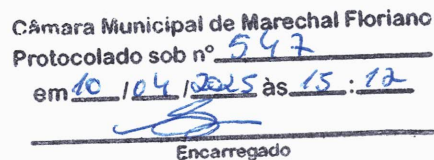 Câmara Municipal de Marechal Floriano
Protocolado sob nº 547
em 10 / 04 / 2025 às 15 : 12
Encarregado